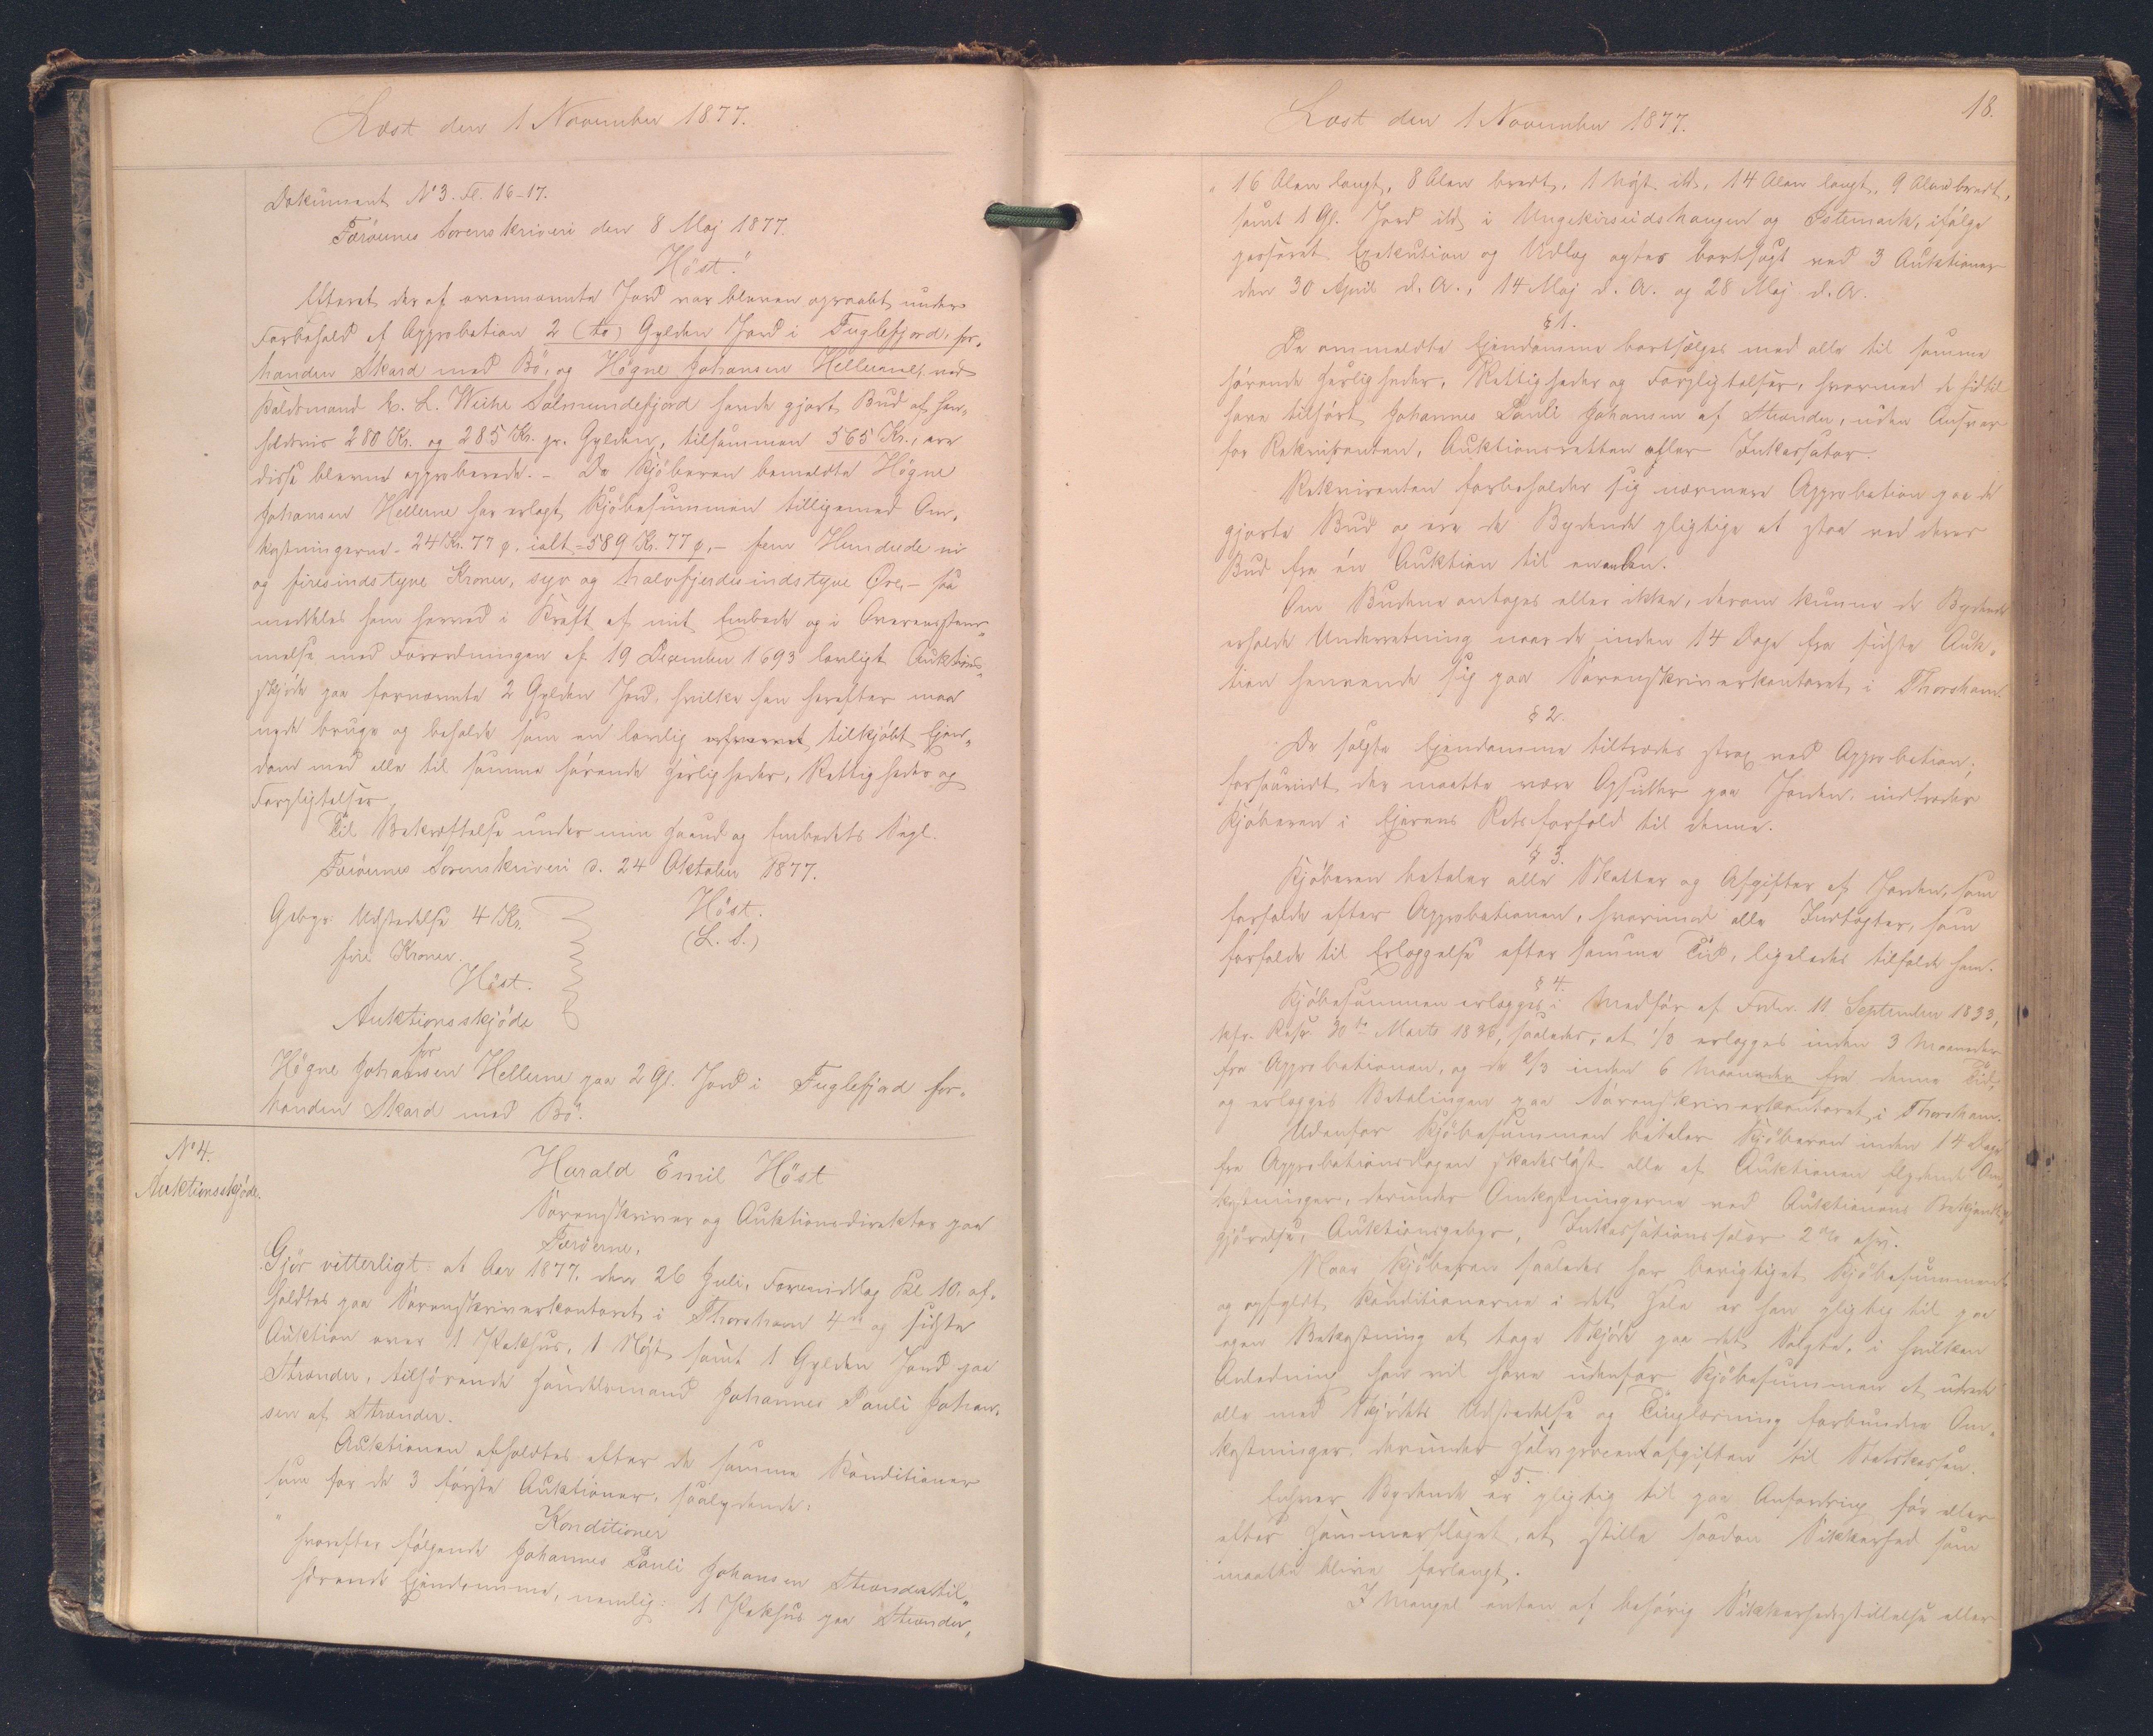 Læst den 1 November 1877.
Dokument N° 3. Fl. 16-17.
Færøernes Sorenskriveri den 8 Maj 1877.
Höst.
Efterat der af ovennævnte Jord var bleven opraabt under
Forbehold af Approbation 2 (to) Gylden Jord i Fuglefjord, for-
handen Skard med Bö, og Högne Johansen Hellerne, ved
Paldsmand L. Weihe Salmundefjord havde gjort Bud af hen-
holdsvis 280 Kr. og 285 Kr. pr. Gylden, tilsammen 565 Kr., ere
disse blevne approberede. - Da Kjöberen bemeldte Högne
Johansen Hellerne har erlagt Kjöbesummen tilligemed Om-
kostningerne - 24 Kr. 77 ø. ialt = 589 Kr. 77 ø. - fem Hundrede ni
og firesindstyve Kroner, syv og halvfjerdesindstyve Øre, - saa
meddeles ham herved i Kraft af mit Embede og i Overensstem-
melse med Forordningen af 19 December 1693 lovligt Auktions-
skjöde paa fornævnte 2 Gylden Jord, hvilke han herefter maa
nyde bruge og beholde som en lovlig tilkjöbt Ejen-
dom med alle til samme hörende Herligheder, Rettigheder og
Forpligtelser.
Til Bekræftelse under min Haand og Embedets Segl.
Færöernes Sorenskriveri d. 24 Oktober 1877.
Gebyr: Udstedelse 4 Kr. Höst.
fire Kroner. (L. S.)
Höst.
Auktionsskjöde
for
Högne Johansen Hellerne paa 2 Gl. Jord i Fuglefjord for-
handen Skard med Bö.
N° 4.
Auktionsskjöde.
Harald Emil Höst
Sorenskriver og Auktionsdirektör paa
Færöerne,
Gjör vitterligt: at Aar 1877, den 26 Juli, Formiddag Kl. 10, af-
holdtes paa Sorenskriverkontoret i Thorshavn 4de og sidste
Auktion over 1 Pakhus, 1 Nöjst samt 1 Gylden Jord paa
Strænder, tilhörende Handelsmand Johannes Pauli Johan-
sen af Strænder.
Auktionen afholdtes efter de samme Konditioner
som for de 3 förste Auktioner, saalydende:
Konditioner
" hvorefter fölgende Johannes Pauli Johansen Strænder til-
hörende Ejendomme, nemlig: 1 Pakhus paa Strænder,
Læst den 1 November 1877.
18.
" 16 Alen langt, 8 Alen bredt, 1 Nöjst ibd, 14 Alen langt, 9 Alen bredt,
samt 1 Gl. Jord ibd i og Östemark, ifölge
passeret Exekution og Udlæg agtes bortsolgt ved 3 Auktioner
den 30 April d. A., 14 Maj d. A. og 28 Maj d. A.
§ 1.
De ommeldte Ejendomme bortsælges med alle til samme
hörende Herligheder, Rettigheder og Forpligtelser, hvormed de hidtil
have tilhört Johannes Pauli Johansen af Strænder, uden Ansvar
for Rekvirenten, Auktionsretten eller Inkassator.
Rekvirenten forbeholder sig nærmere Approbation paa de
gjorte Bud og ere de Bydende pligtige at staa ved deres
Bud fra én Auktion til en anden.
Om Budene antages eller ikke, derom kunne de Bydende
erholde Underretning naar de inden 14 Dage fra sidste Auk-
tion henvende sig paa Sorenskriverkontoret i Thorshavn.
§ 2.
De solgte Ejendomme tiltrædes strax ved Approbation;
forsaavidt der maatte være Opsidder paa Jorden, indtræder
Kjöberen i Ejerens Retsforhold til denne.
§ 3.
Kjöberen betaler alle Skatter og Afgifter af Jorden, som
forfalde efter Approbationen, hvorimod alle Indtægter, som
forfalde til Erlæggelse efter samme Tid, ligeledes tilfalde ham.
§ 4.
Kjöbesummen erlægges i Medför af Frdn. 11 September 1833,
kfr. Resr. 30te Marts 1836, saaledes, at 1/3 erlægges inden 3 Maaneder
fra Approbationen, og de 2/3 inden 6 Maaneder fra denne Tid,
og erlægges Betalingen paa Sorenskriverkontoret i Thorshavn.
Udenfor Kjöbesummen betaler Kjöberen inden 14 Dage
fra Approbationsdagen skadeslöst alle af Auktionen flydende Om-
kostninger, derunder Omkostningerne ved Auktionens Bekjendt-
gjörelse, Auktionsgebyr, Inkassationssalær 2 % osv.
Naar Kjöberen saaledes har berigtiget Kjöbesummen
og opfyldt Konditionerne i det Hele er han pligtig til paa
egen Bekostning at tage Skjöde paa det Solgte, i hvilken
Anledning han vil have udenfor Kjöbesummen at udrede
alle med Skjödets Udstedelse og Tinglæsning forbundne Om-
kostninger, derunder Halvprocentafgiften til Statskassen.
§ 5.
Enhver Bydende er pligtig til paa Anfordring för eller
efter Hammerslaget, at stille saadan Sikkerhed som
maatte blive forlangt.
I Mangel enten af behörig Sikkerhedsstillelse eller